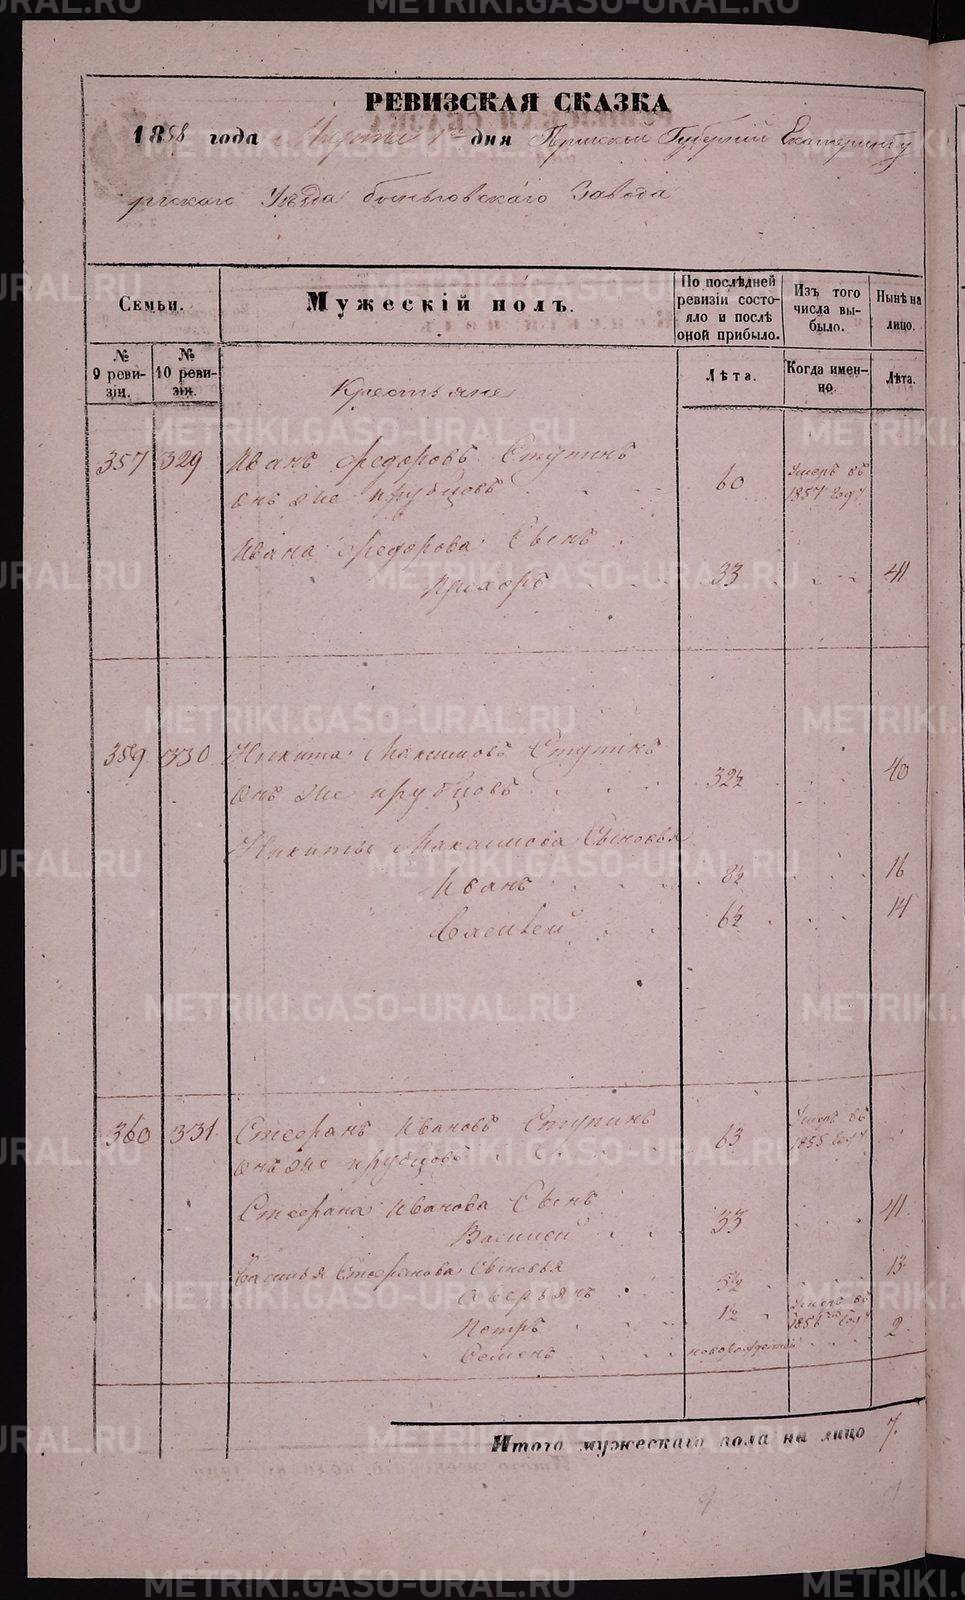 РЕВИЗСКАЯ СКАЗКА
1858 года Марта 1го дня Пермской Губернии Екатеринбу
ргскаго Уезда Быньговскаго Завода
Семьи.
Мужескій полъ.
По послѣдней ревизіи состояло и послѣ оной прибыло.
Изъ того числа выбыло.
Нынѣ на лицо.
№ 9 ревизіи.
№ 10 ревизіи.
Лѣта.
Когда именно.
Лѣта.
Крестьяне
357 329 Иванъ Федоровъ Ступинъ
онъ же прубцовъ 60 Умеръ въ 1857 году
Ивана Федорова Сынъ
Прохоръ 33 41
359 330 Никита Максимовъ Ступинъ
онъ же прубцовъ 32½ 40
Никиты Максимова Сыновья
Иванъ 8½ 16
Василей 6½ 14
360 331 Стефанъ Ивановъ Ступинъ
онъ же прубцовъ 63 Умеръ въ 1855 году
Стефана Иванова Сынъ
Василей 33 41
Василья Стефанова Сыновья
Аверьянъ 5½ 13
Петръ 1½ Умеръ въ 1856 году
Семенъ новорожденный 2
Итого мужескаго пола на лицо 7.
METRIKI.GASO-URAL.RU